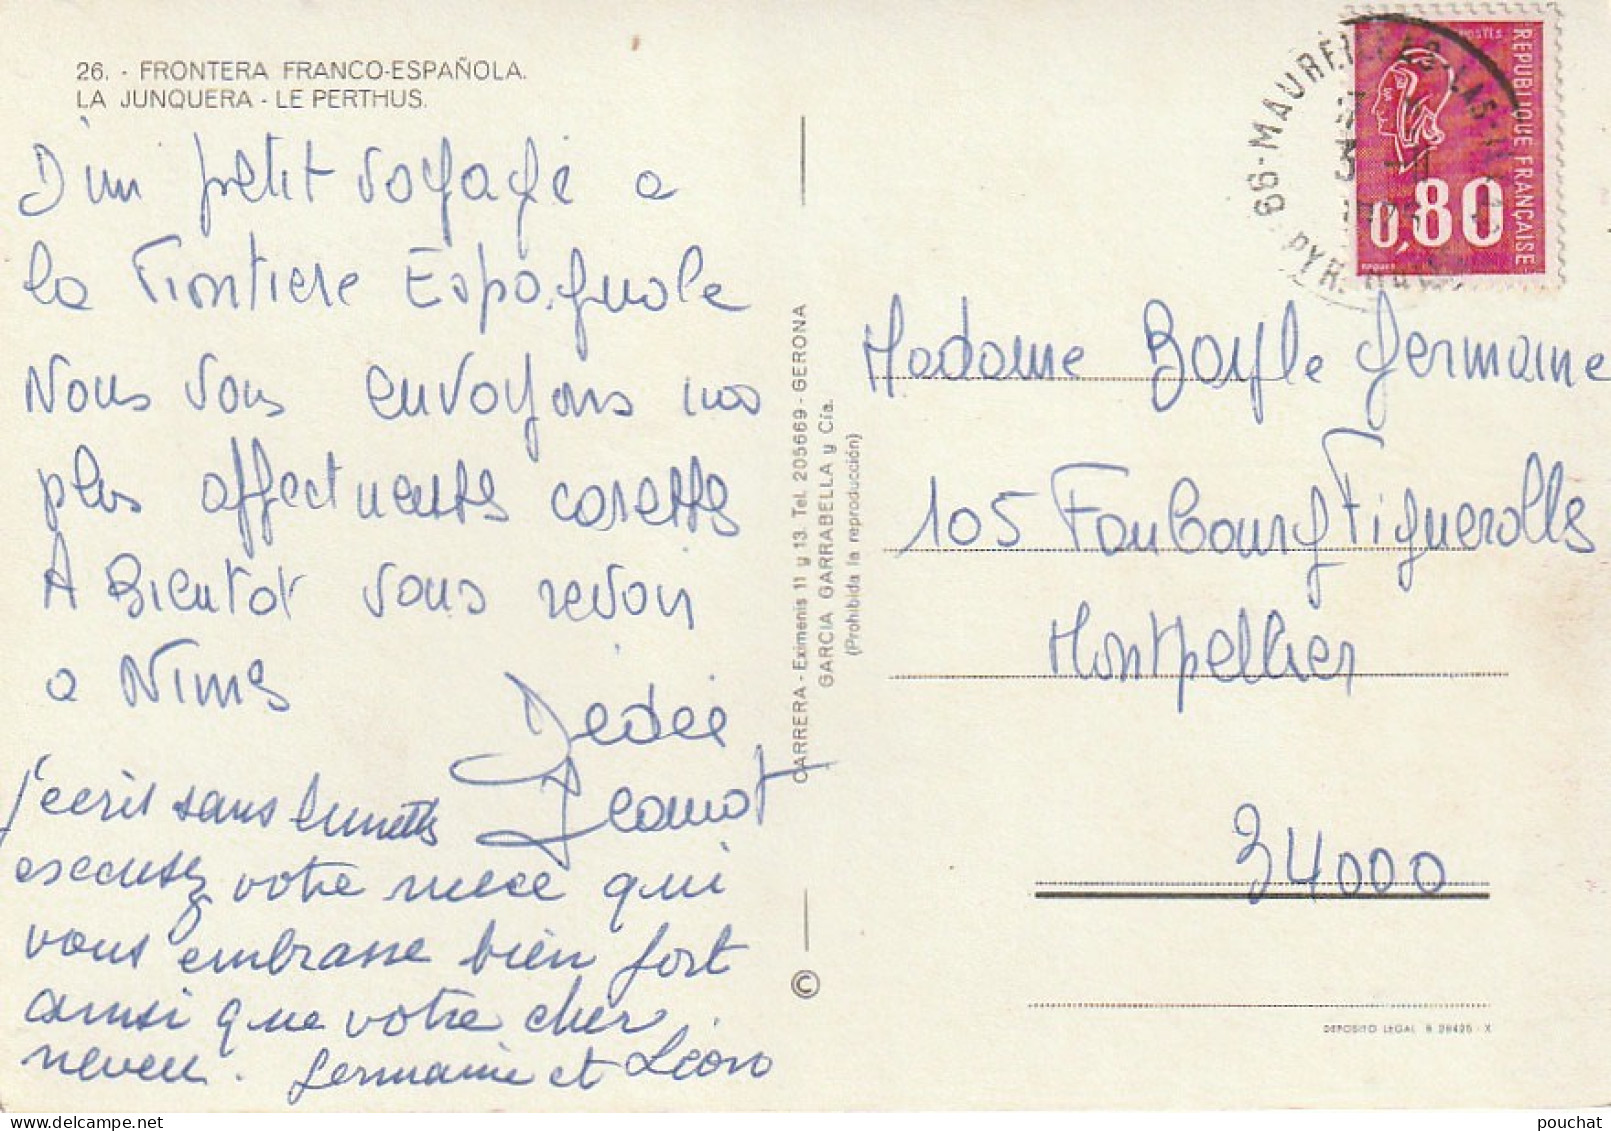 26. - FRONTERA FRANCO-ESPAÑOLA.
LA JUNQUERA - LE PERTHUS.
D'un petit voyage a
la Frontiere Espagnole
Nous vous envoyons nos
plus affectueuses caresses
A Bientot vous revoir
a Nimes
Dedée
j'ecris sans lunettes
escusez votre niece qui
vous embrasse bien fort
ainsi que votre cher
neveu. Germaine et Léon
CARRERA - Eximenis 11 y 13. Tel. 205669 - GERONA
GARCIA GARRABELLA y Cía.
(Prohibida la reproducción)
©
66-MAUREILLAS-LAS-ILLAS
PYR.
POSTES
REPUBLIQUE FRANÇAISE
0,80
Madame Boyle Germaine
105 Faubourg Figuerolles
Montpellier
34000
DEPOSITO LEGAL B 28425-X
pouchat